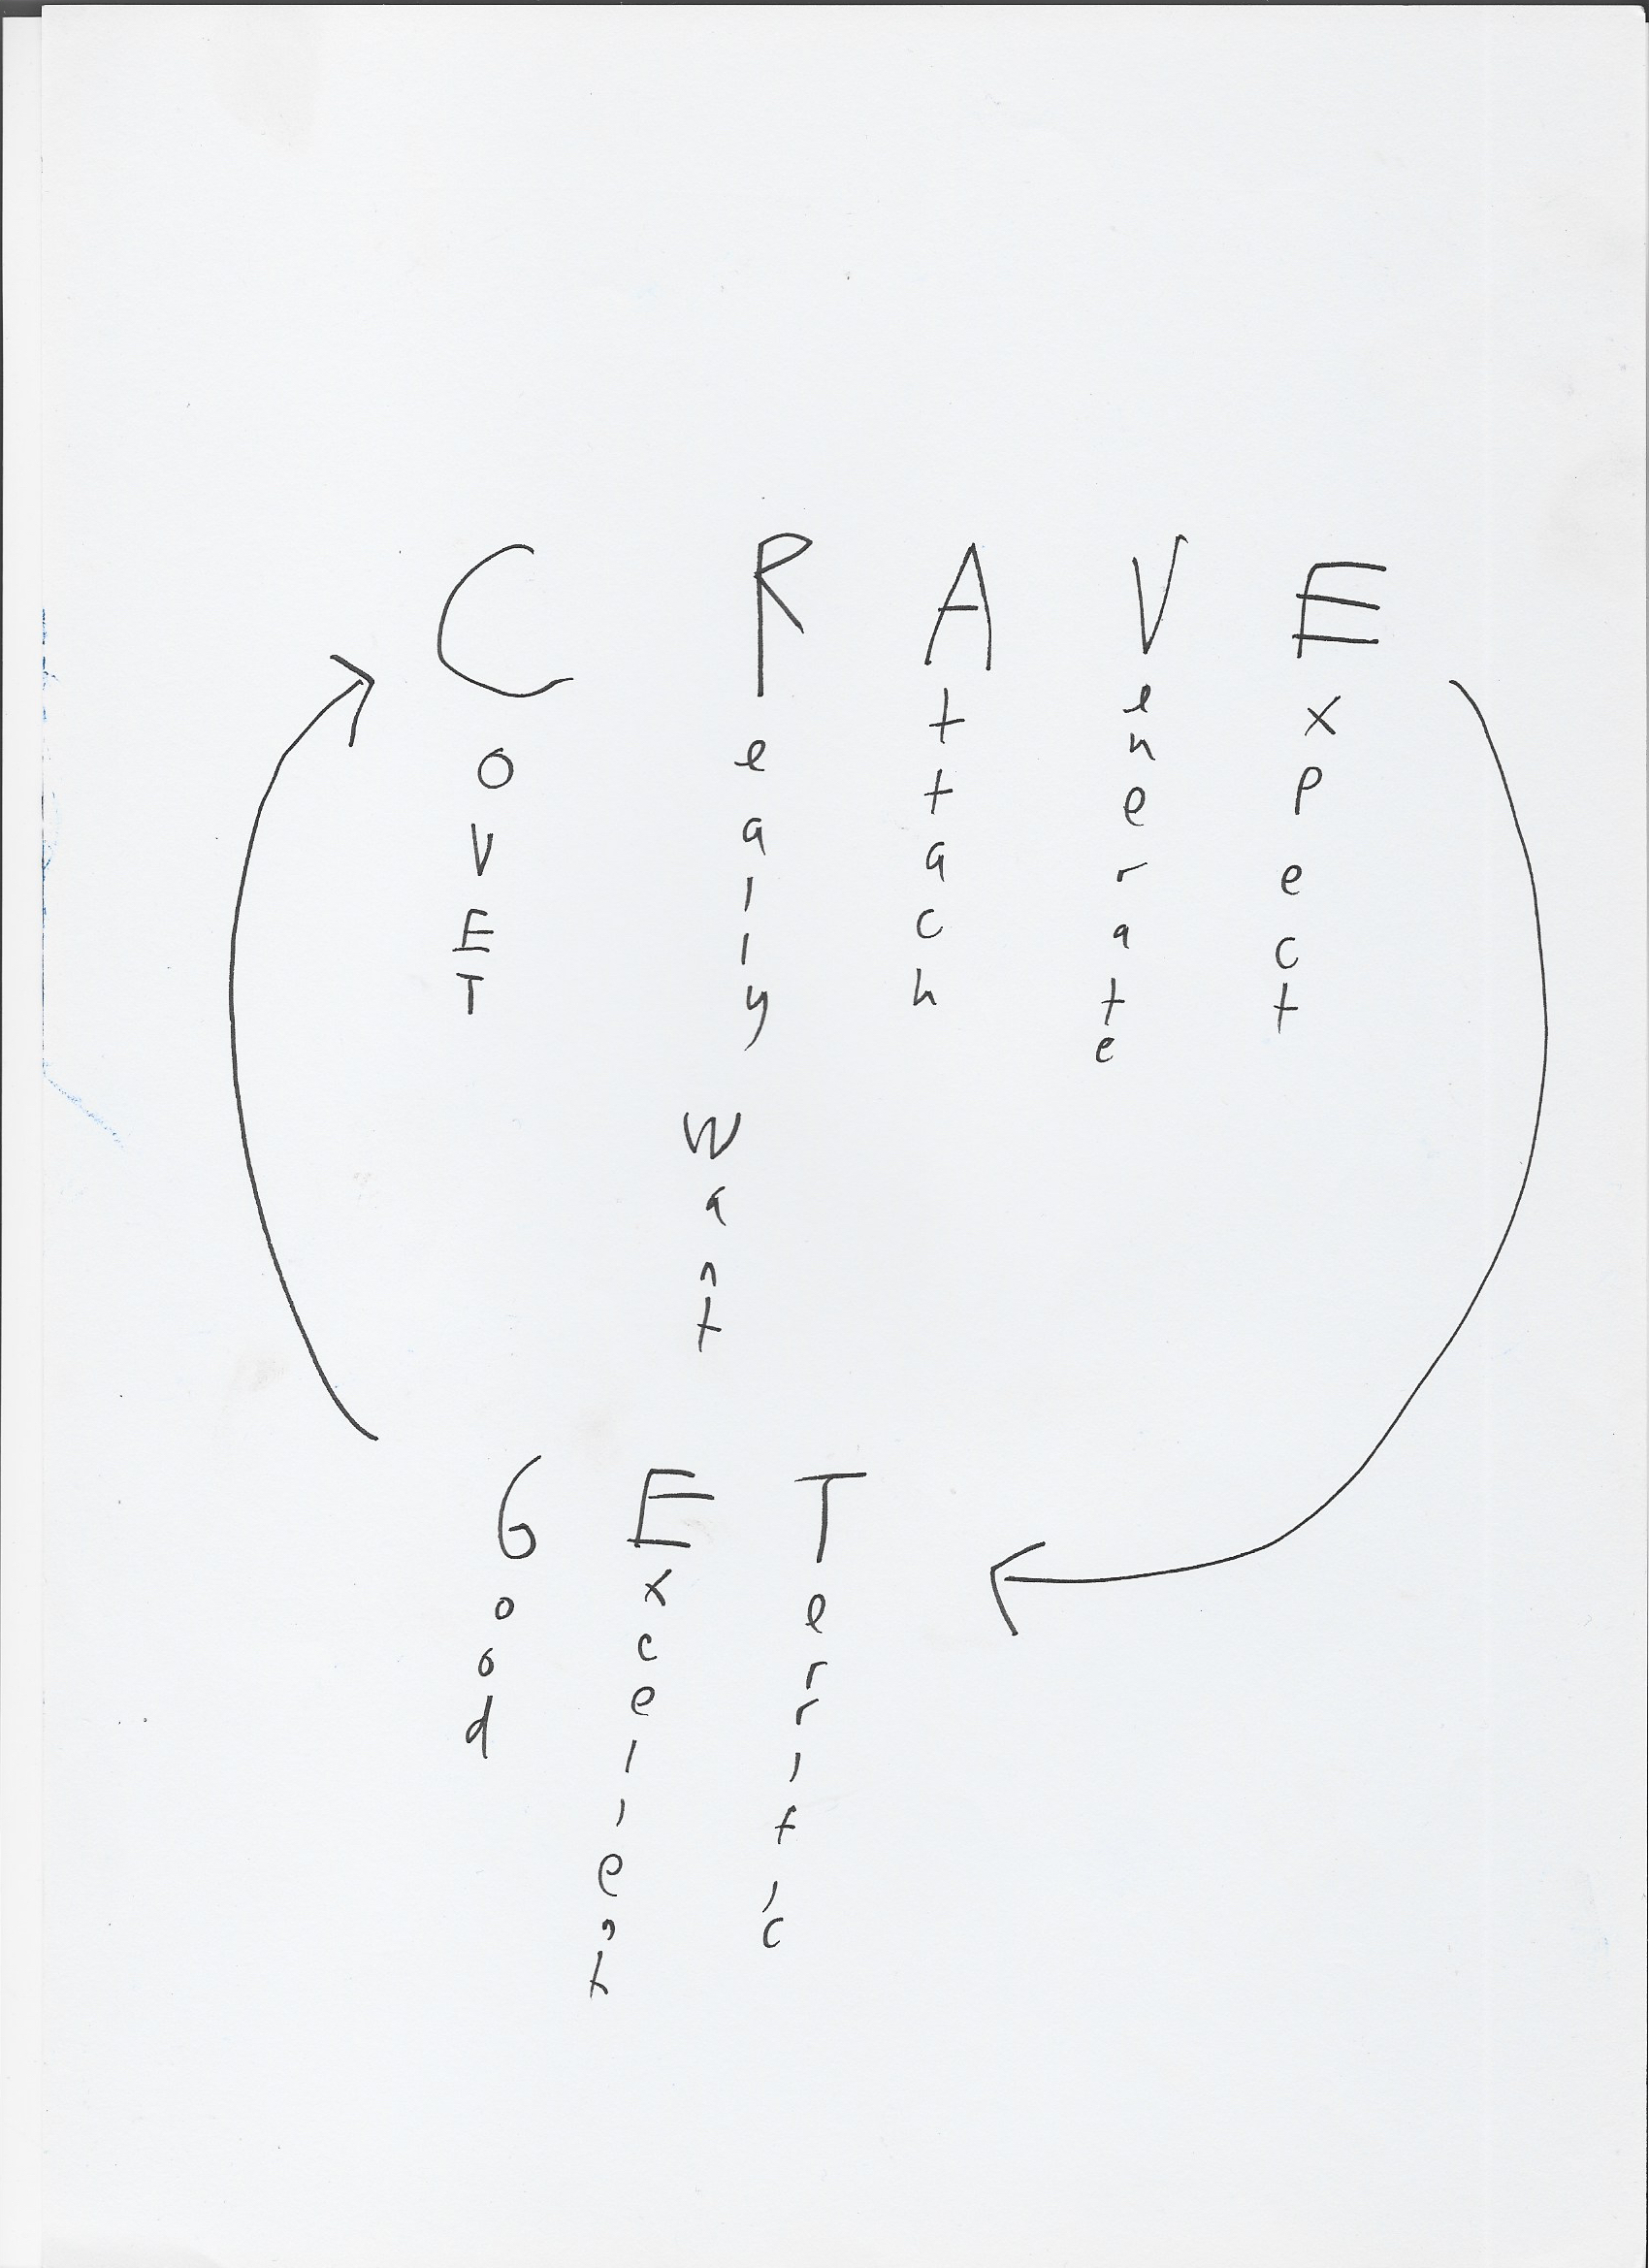 CRAVE
COVET
Really
Want
Attach
Venerate
Expect
GET
Good
Excellent
Terrific